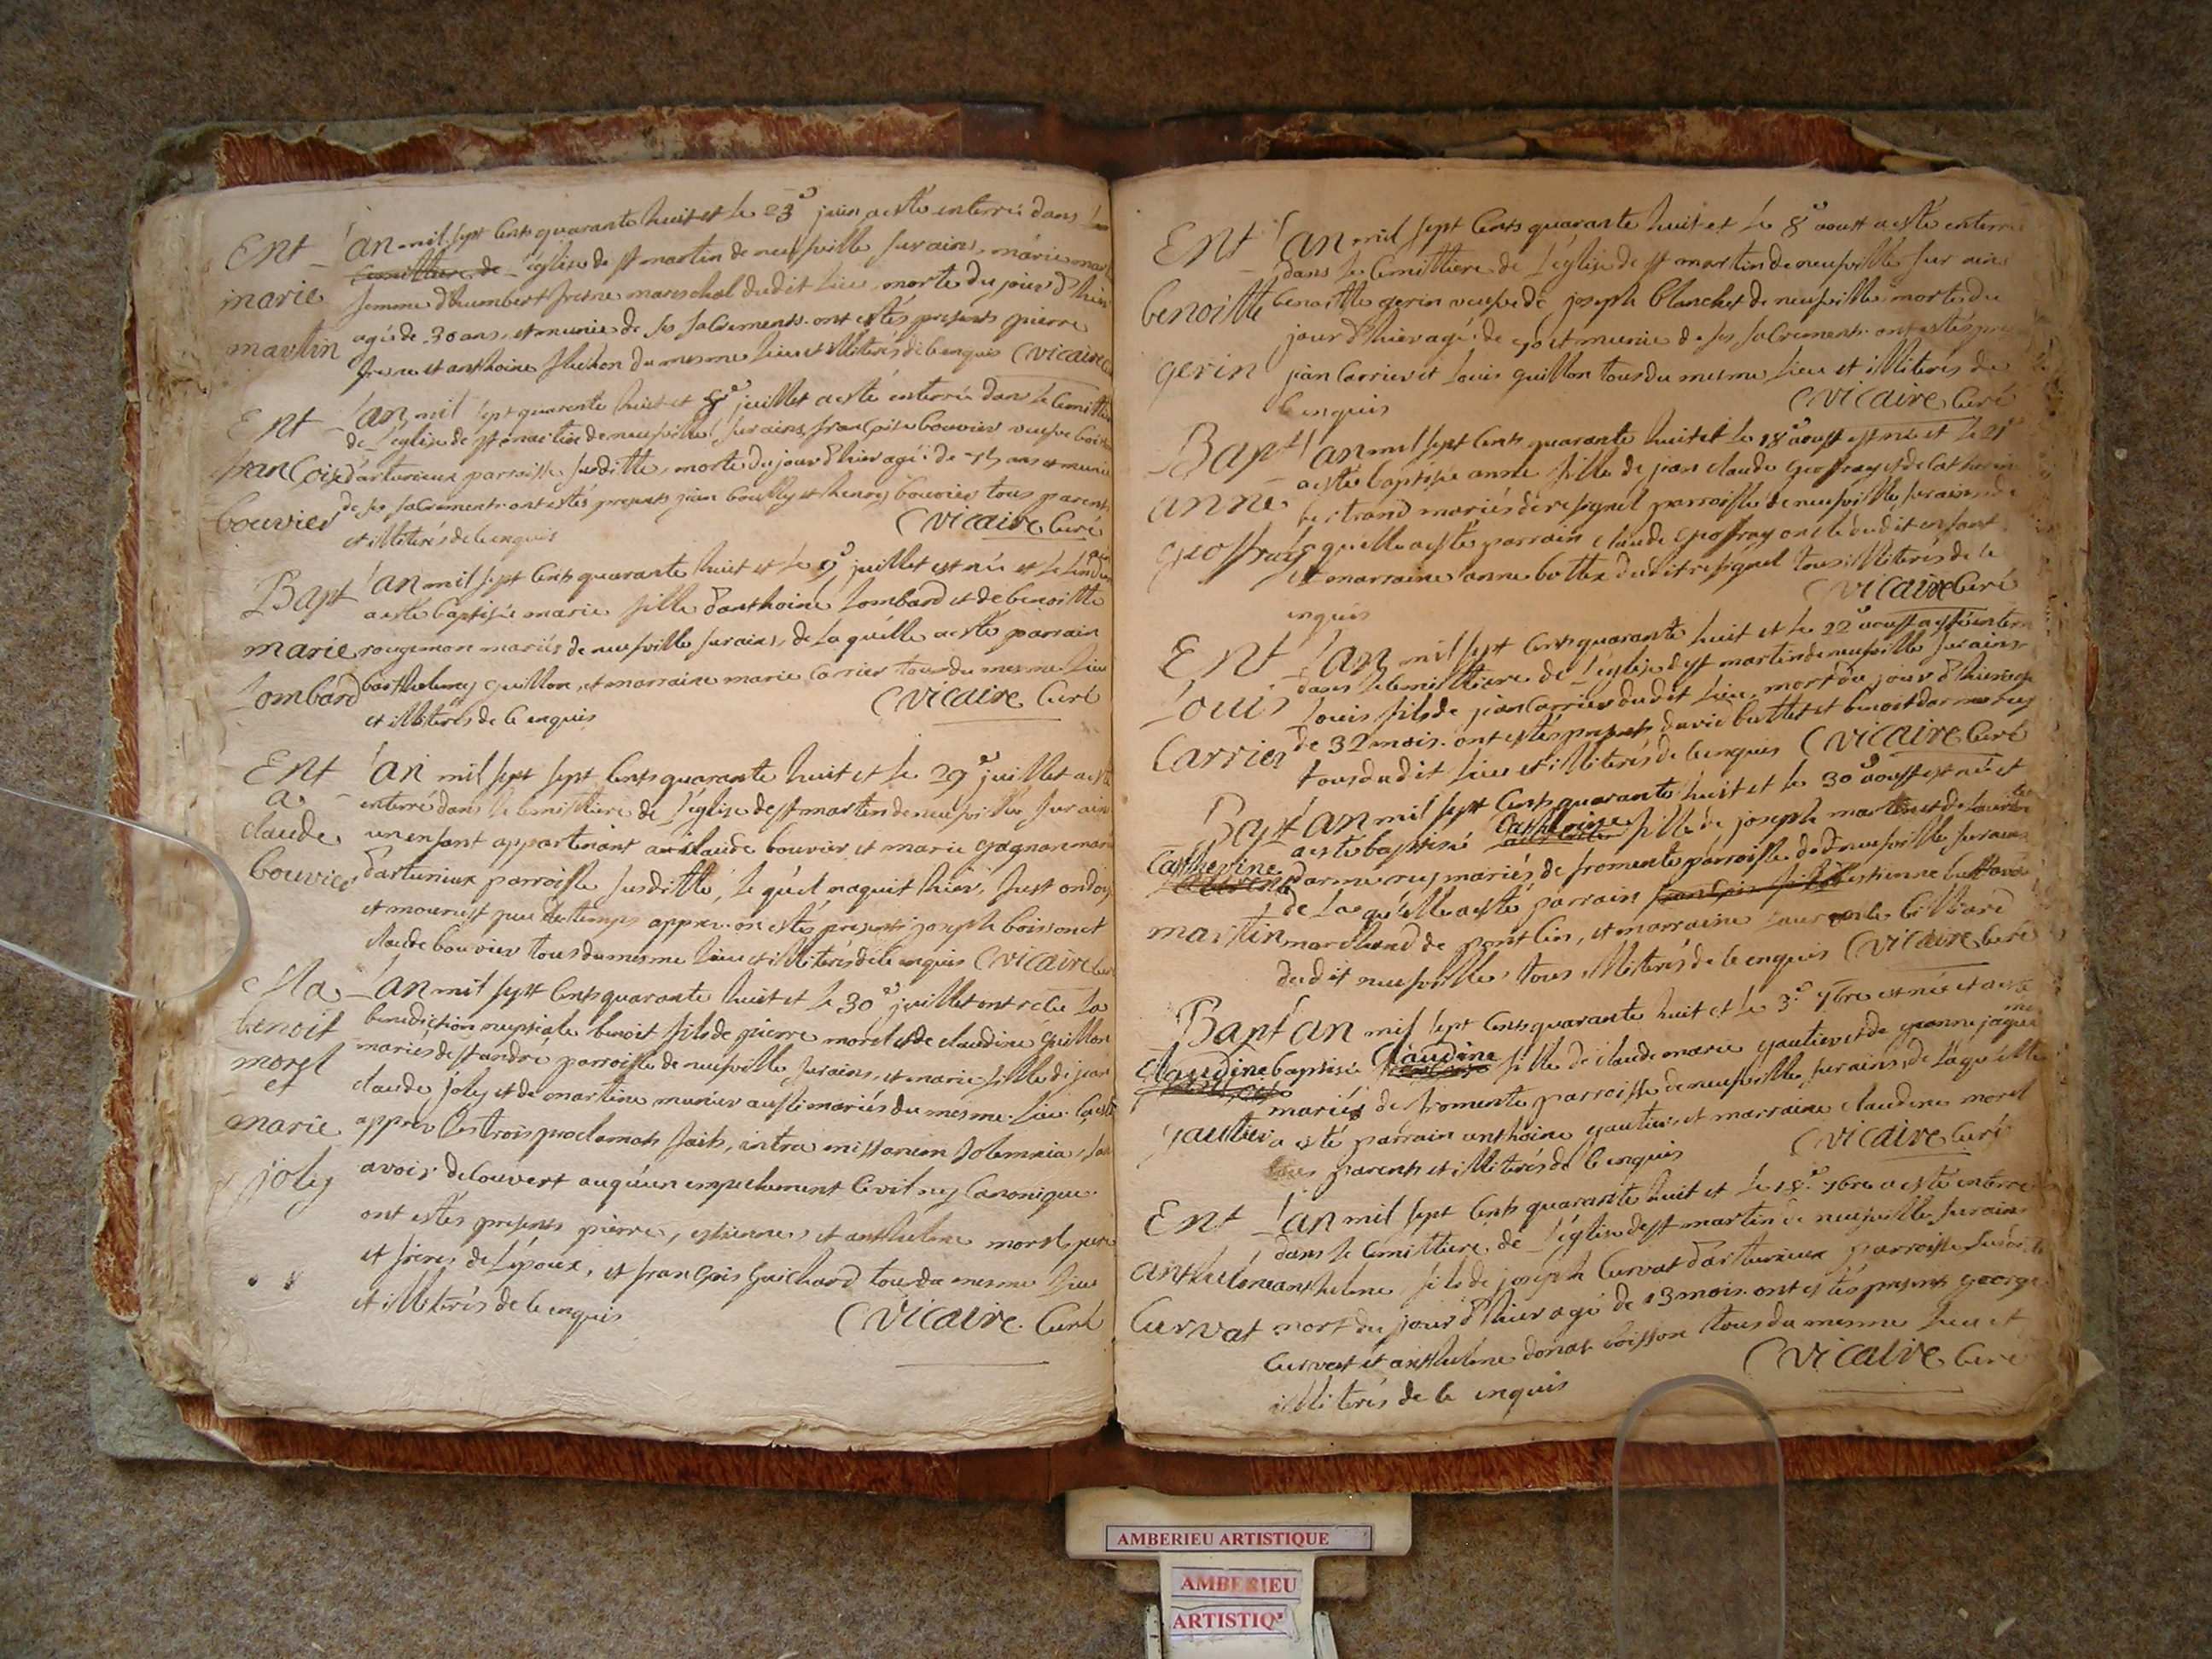 Ent – l'an mil sept cents quarante huit et le 23e juin a esté enterrée dans
cemittiere de l'église de st martin de neufville sur ains, marie
marie femme d'humbert fresne mareschal dudit lieu, morte du jour d'hier
martin agée de 30 ans, et munie de ses sacrements. ont estés presents pierre
fresne et anthoine du mesme lieu et illiterés de ce enquis Vicaire
Ent – l'an mil sept quarante huit et 8e juillet a esté enterrée dans le cemittiere
de l'église de st martin de neufville sur ains françoise bouvier veufve
francoise d'arturieux parroisse susditte, morte du jour d'hier agée de ans et munie
bouvier de ses sacrements. ont estés presents jean et henry bouvier tous parents
et illiterés de ce enquis Vicaire Curé
Bapt l'an mil sept cents quarante huit et le 9e juillet est née et le lendemain
a esté baptisée marie fille d'anthoine Lombard et de benoitte
marie rougemon mariés de neufville sur ains, de la quelle a esté parrain
Lombard barthelemy guillon, et marraine marie carrier tous du mesme lieu
et illiterés de ce enquis Vicaire Curé
Ent l'an mil sept sept cents quarante huit et le 29e juillet a esté
a enterré dans le cemittiere de l'église de st martin de neufville sur ains
claude un enfant appartenant a claude bouvier et marie gagnon mariés
bouvier d'arturieux parroisse susditte, le quel naquit hier, fust ondoy
et mourust peu de temps appres. on estés presents joseph boisson et
claude bouvier tous du mesme lieu et illiterés de ce enquis Vicaire
Ma – l'an mil sept cents quarante huit et le 30e juillet ont recu la
benoit benediction nuptiale benoit fils de pierre morel et de claudine guillon
morel mariés de st andré parroisse de neufville sur ains, et marie fille de jean
et claude joly et de martine munier aussi mariés du mesme lieu. Ce
marie appres les trois proclamats faits, intra missarum solemnia, sans
joly avoir decouvert auqu'un empechement civil ny canonique.
ont estés presents pierre, estienne, et anthelme morel pere
et freres de l'époux, et françois guichard tous du mesme lieu
et illiterés de ce enquis Vicaire Curé
Ent l'an mil sept cents quarante huit et le 8e aoust a esté enterrée
dans le cemittiere de l'église de st martin de neufville sur ains
benoitte benoitte gerin veufve de joseph blanchet de neufville morte du
jour d'hier agée de et munie de ses sacrements. ont estés
gerin jean Carrier et Louis guillon tous du mesme lieu et illiterés de
ce enquis Vicaire Curé
Bapt l'an mil sept cents quarante huit et le 18e aoust est née et le 21e
a esté baptisée anne fille de jean claude geoffray et de catherine
anne bertrand mariés de resignel parroisse de neufville sur ains de
geoffray laquelle a esté parrain claude geoffray oncle dudit enfant
et marraine anne bottex dudit resignel tous illiterés de ce
enquis Vicaire Curé
Ent l'an mil sept cents quarante huit et le 22e aoust a esté enterré
dans le cemittiere de l'église de st martin de neufville sur ains
Louis Louis fils de jean Carrier dudit lieu, mort du jour d'hier agé
Carrier de 32 mois. ont estés presents david buttet et benoit darmerey
tous dudit lieu et illiterés de ce enquis Vicaire Curé
Bapt l'an mil sept cents quarante huit et le 30e aoust est née et
a esté baptisée Catherine fille de joseph martin et de
Catherine darmerey mariés de fromente parroisse dud neufville sur ains
de laquelle a esté parrain estienne
martin marchand de pontlin, et marraine billiard
dudit neufville, tous illiterés de ce enquis Vicaire Curé
Bapt l'an mil sept cents quarante huit et le 3e 7bre est née et a esté
claudine baptisée Claudine fille de claude marie gautier et de jeanne
mariés de fromente parroisse de neufville sur ains, de laquelle
gautier a esté parrain anthoine gautier, et marraine claudine morel
tous parents et illiterés de ce enquis Vicaire Curé
Ent l'an mil sept cents quarante huit et le 18e 7bre a esté enterré
dans le cemittiere de l'église de st martin de neufville sur ains
anthelme anthelme fils de joseph Curvat d'arturieux parroisse
Curvat mort du jour d'hier agé de 13 mois. ont estés presents george
Curvat et anthelme donat boisson tous du mesme lieu et
illiterés de ce enquis Vicaire Curé
AMBERIEU ARTISTIQUE
AMBERIEU
ARTISTIQ